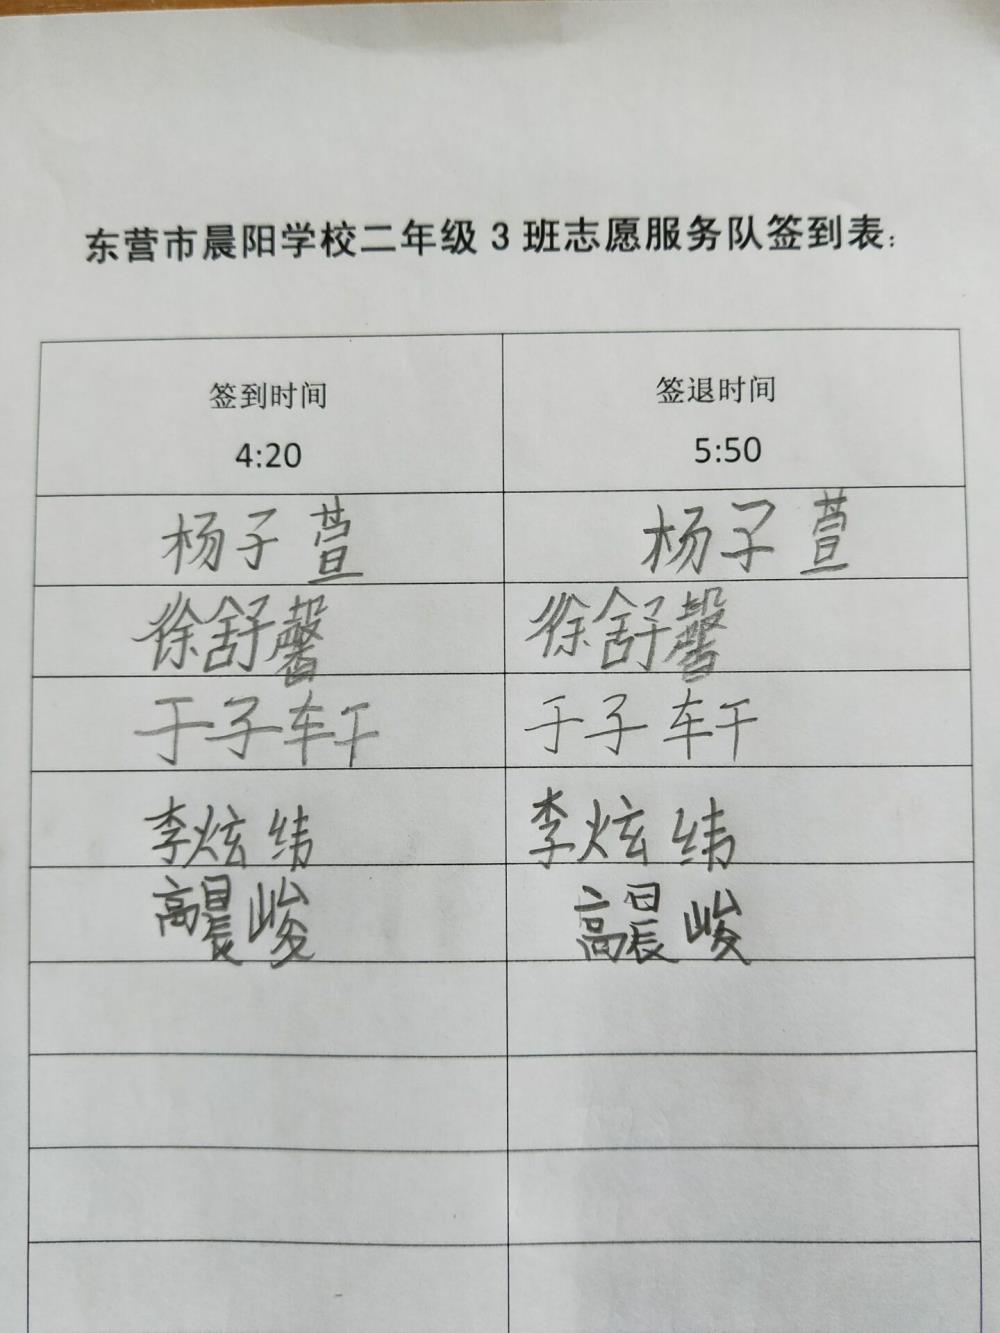 东营市晨阳学校二年级3班志愿服务队签到表：
签到时间 签退时间
4:20 5:50
杨子萱 杨子萱
徐舒馨 徐舒馨
于子轩 于子轩
李炫纬 李炫纬
高晨峻 高晨峻